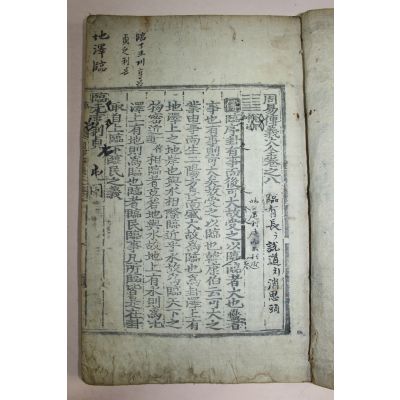 周易傳義大全卷之八
臨序卦有事而後可大故受之以臨臨者大也蠱者
事也有事則可大矣故受之以臨也韓康伯云可大之
業由事而生二陽方長而盛大故爲臨也爲卦澤上有
地澤上之地岸也與水相際臨近乎水故爲臨天下之
物密近相臨者莫若地與水故地上有水則爲比
澤上有地則爲臨也臨者臨民臨事凡所臨皆是在卦
取自上臨下臨民之義
臨元亨利貞
地澤臨